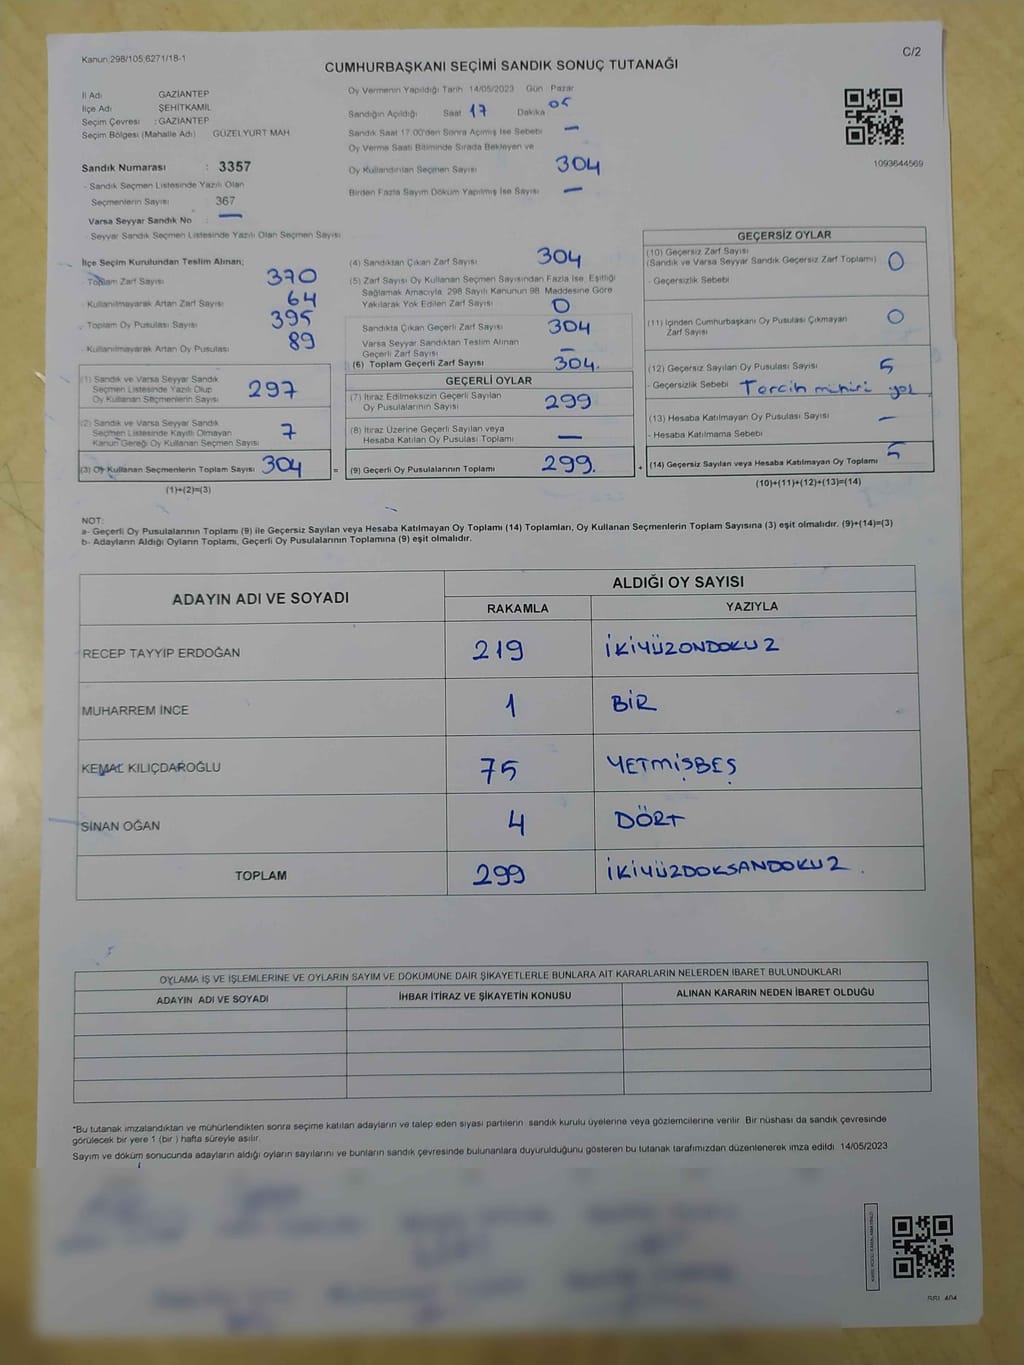 Kanun:298/105,6271/18-1
C/2
CUMHURBAŞKANI SEÇİMİ SANDIK SONUÇ TUTANAĞI
İl Adı GAZİANTEP
İlçe Adı ŞEHİTKAMİL
Seçim Çevresi : GAZİANTEP
Seçim Bölgesi (Mahalle Adı) GÜZELYURT MAH.
Sandık Numarası : 3357
- Sandık Seçmen Listesinde Yazılı Olan
Seçmenlerin Sayısı 367
Varsa Seyyar Sandık No : —
- Seyyar Sandık Seçmen Listesinde Yazılı Olan Seçmen Sayısı
Oy Vermenin Yapıldığı Tarih 14/05/2023 Gün Pazar
Sandığın Açıldığı Saat 17 Dakika 05
Sandık Saat 17.00'den Sonra Açılmış İse Sebebi —
Oy Verme Saati Bitiminde Sırada Bekleyen ve
Oy Kullandırılan Seçmen Sayısı 304
Birden Fazla Sayım Döküm Yapılmış İse Sayısı —
1093644569
İlçe Seçim Kurulundan Teslim Alınan;
- Toplam Zarf Sayısı 370
- Kullanılmayarak Artan Zarf Sayısı 64
- Toplam Oy Pusulası Sayısı 395
- Kullanılmayarak Artan Oy Pusulası 89
(1) Sandık ve Varsa Seyyar Sandık
Seçmen Listesinde Yazılı Olup
Oy Kullanan Seçmenlerin Sayısı 297
(2) Sandık ve Varsa Seyyar Sandık
Seçmen Listesinde Kayıtlı Olmayan
Kanun Gereği Oy Kullanan Seçmen Sayısı 7
(3) Oy Kullanan Seçmenlerin Toplam Sayısı 304 =
(1)+(2)=(3)
(4) Sandıktan Çıkan Zarf Sayısı 304
(5) Zarf Sayısı Oy Kullanan Seçmen Sayısından Fazla İse, Eşitliği
Sağlamak Amacıyla, 298 Sayılı Kanunun 98. Maddesine Göre
Yakılarak Yok Edilen Zarf Sayısı 0
Sandıkta Çıkan Geçerli Zarf Sayısı 304
Varsa Seyyar Sandıktan Teslim Alınan
Geçerli Zarf Sayısı —
(6) Toplam Geçerli Zarf Sayısı 304.
GEÇERLİ OYLAR
(7) İtiraz Edilmeksizin Geçerli Sayılan
Oy Pusulalarının Sayısı 299
(8) İtiraz Üzerine Geçerli Sayılan veya
Hesaba Katılan Oy Pusulası Toplamı —
(9) Geçerli Oy Pusulalarının Toplamı 299. +
GEÇERSİZ OYLAR
(10) Geçersiz Zarf Sayısı
(Sandık ve Varsa Seyyar Sandık Geçersiz Zarf Toplamı) 0
- Geçersizlik Sebebi
(11) İçinden Cumhurbaşkanı Oy Pusulası Çıkmayan
Zarf Sayısı 0
(12) Geçersiz Sayılan Oy Pusulası Sayısı 5
- Geçersizlik Sebebi Tercih mührü yok
(13) Hesaba Katılmayan Oy Pusulası Sayısı —
- Hesaba Katılmama Sebebi
(14) Geçersiz Sayılan veya Hesaba Katılmayan Oy Toplamı 5
(10)+(11)+(12)+(13)=(14)
NOT:
a- Geçerli Oy Pusulalarının Toplamı (9) ile Geçersiz Sayılan veya Hesaba Katılmayan Oy Toplamı (14) Toplamları, Oy Kullanan Seçmenlerin Toplam Sayısına (3) eşit olmalıdır. (9)+(14)=(3)
b- Adayların Aldığı Oyların Toplamı, Geçerli Oy Pusulalarının Toplamına (9) eşit olmalıdır.
ADAYIN ADI VE SOYADI
ALDIĞI OY SAYISI
RAKAMLA YAZIYLA
RECEP TAYYİP ERDOĞAN 219 İKİYÜZONDOKUZ
MUHARREM İNCE 1 BİR
KEMAL KILIÇDAROĞLU 75 YETMİŞBEŞ
SİNAN OĞAN 4 DÖRT
TOPLAM 299 İKİYÜZDOKSANDOKUZ.
OYLAMA İŞ VE İŞLEMLERİNE VE OYLARIN SAYIM VE DÖKÜMÜNE DAİR ŞİKAYETLERLE BUNLARA AİT KARARLARIN NELERDEN İBARET BULUNDUKLARI
ADAYIN ADI VE SOYADI İHBAR İTİRAZ VE ŞİKAYETİN KONUSU ALINAN KARARIN NEDEN İBARET OLDUĞU
*Bu tutanak imzalandıktan ve mühürlendikten sonra seçime katılan adayların ve talep eden siyasi partilerin sandık kurulu üyelerine veya gözlemcilerine verilir. Bir nüshası da sandık çevresinde
görülecek bir yere 1 (bir ) hafta süreyle asılır.
Sayım ve döküm sonucunda adayların aldığı oyların sayılarını ve bunların sandık çevresinde bulunanlara duyurulduğunu gösteren bu tutanak tarafımızdan düzenlenerek imza edildi. 14/05/2023